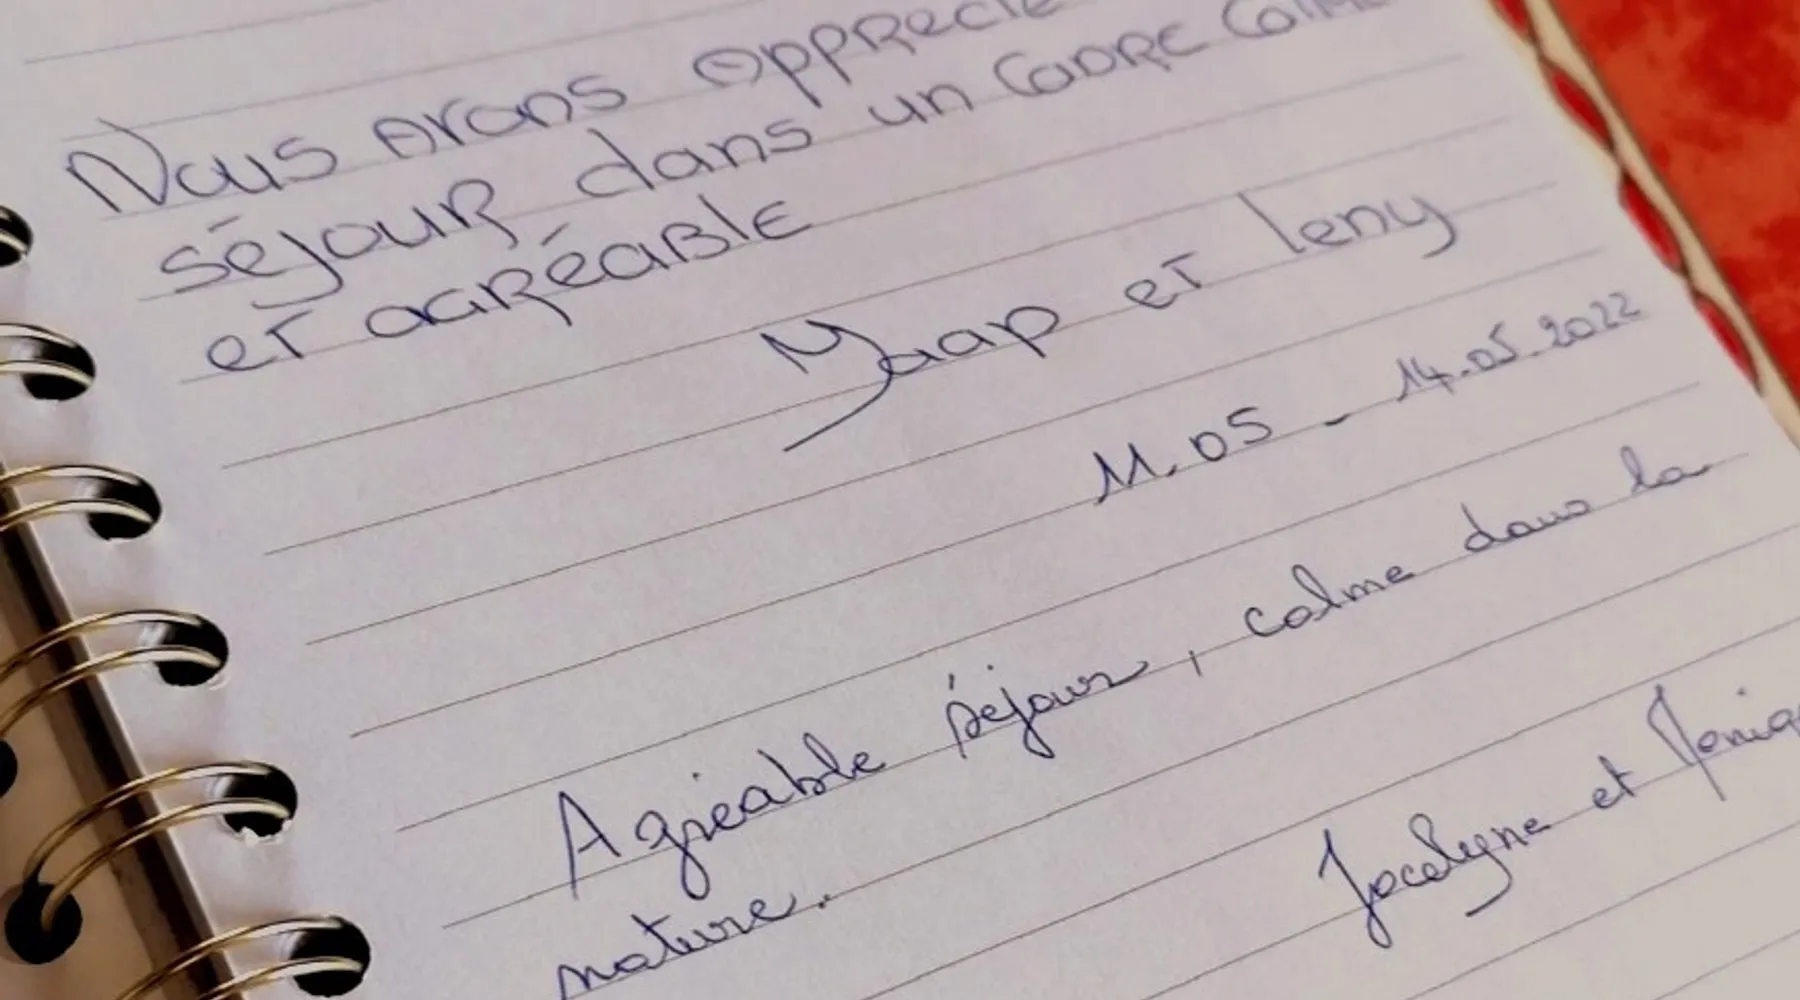 Nous avons apprécié
séjour dans un cadre calme
et agréable
Yaap et leny
11.05 - 14.05.2022
Agréable séjour, calme dans la
nature.
Jocelyne et